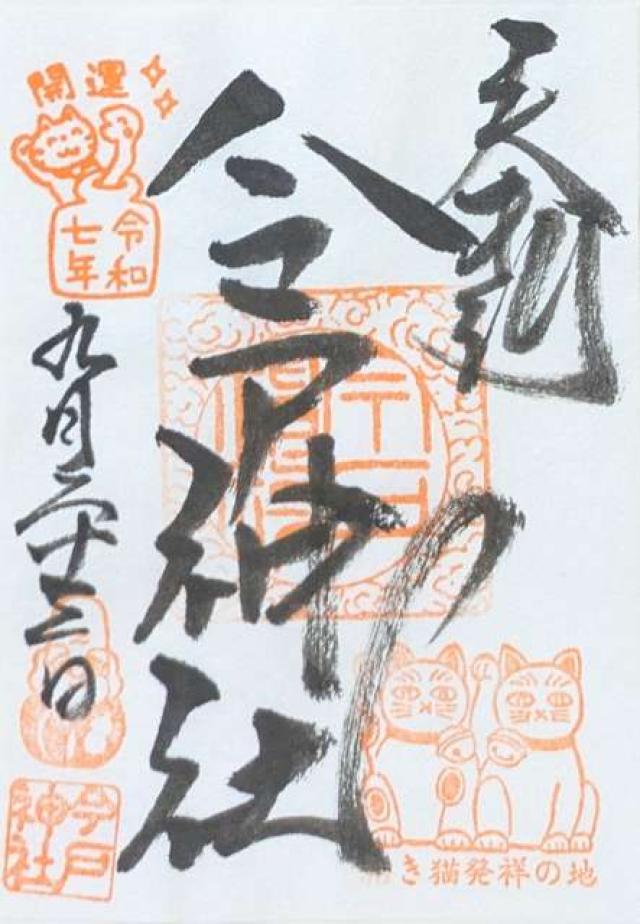 奉拝
今戸神社
開運
令和
七年
九月二十三日
今戸
神社
招き猫発祥の地